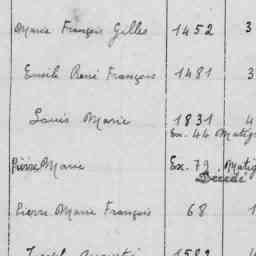 Marie François Gilles 1452 3
Emile René François 1481 3
Louis Marie 1831 4
Ex. 44 Matig
Pierre Marie Ex. 79 Matig
Décédé
Pierre Marie François 68 1
1582